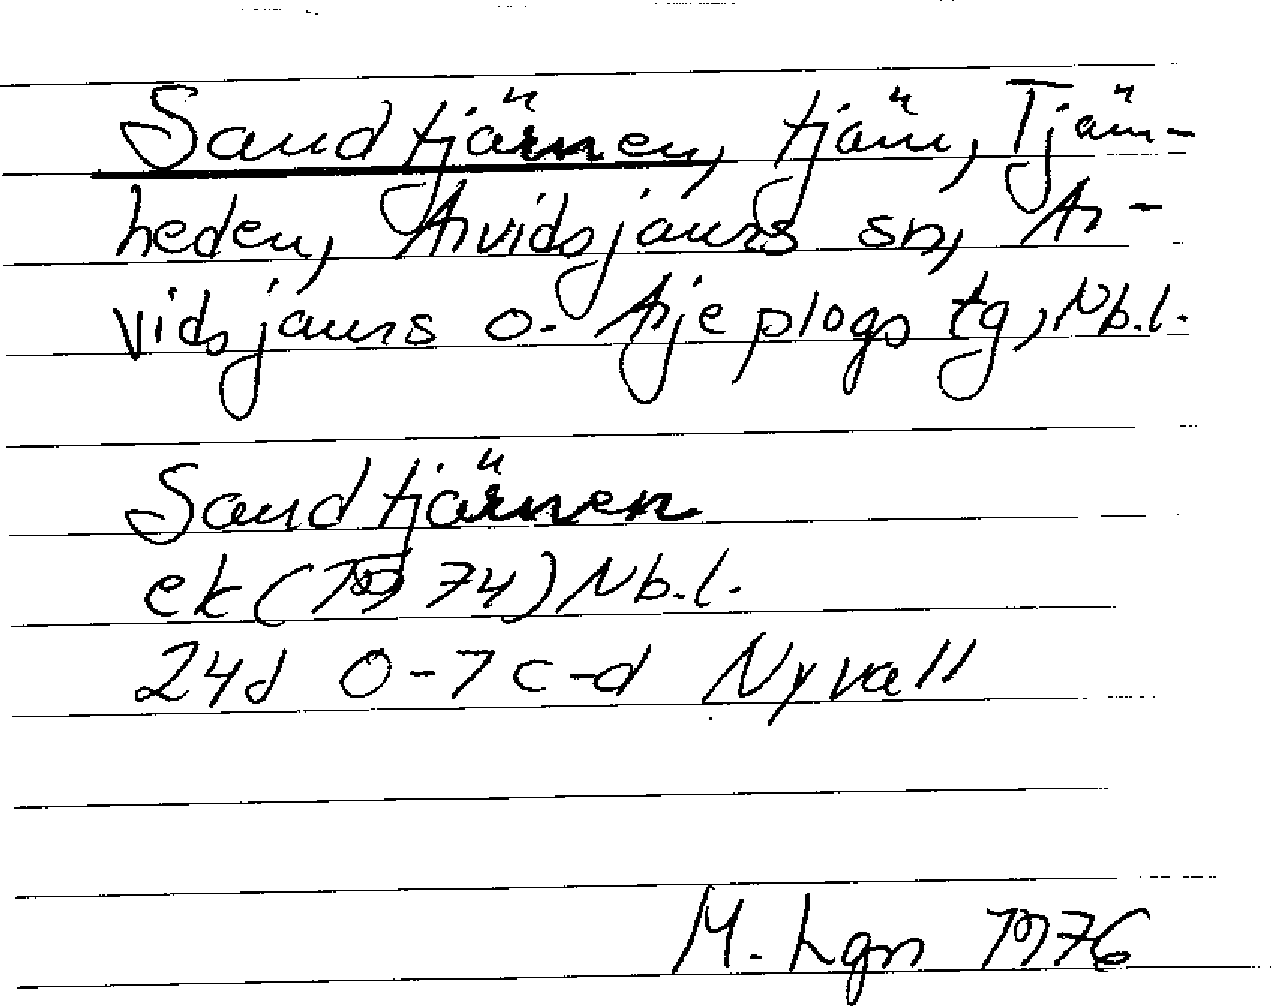 Sandtjärnen, tjärn, Tjärn-
heden, Arvidsjaurs sn, Ar-
vidsjaurs o. Arjeplogs tg, Nb.l.
Sandtjärnen
ek (1974) Nb.l.
24J 0-7 c-d Nyvall
M. Lgn 1976